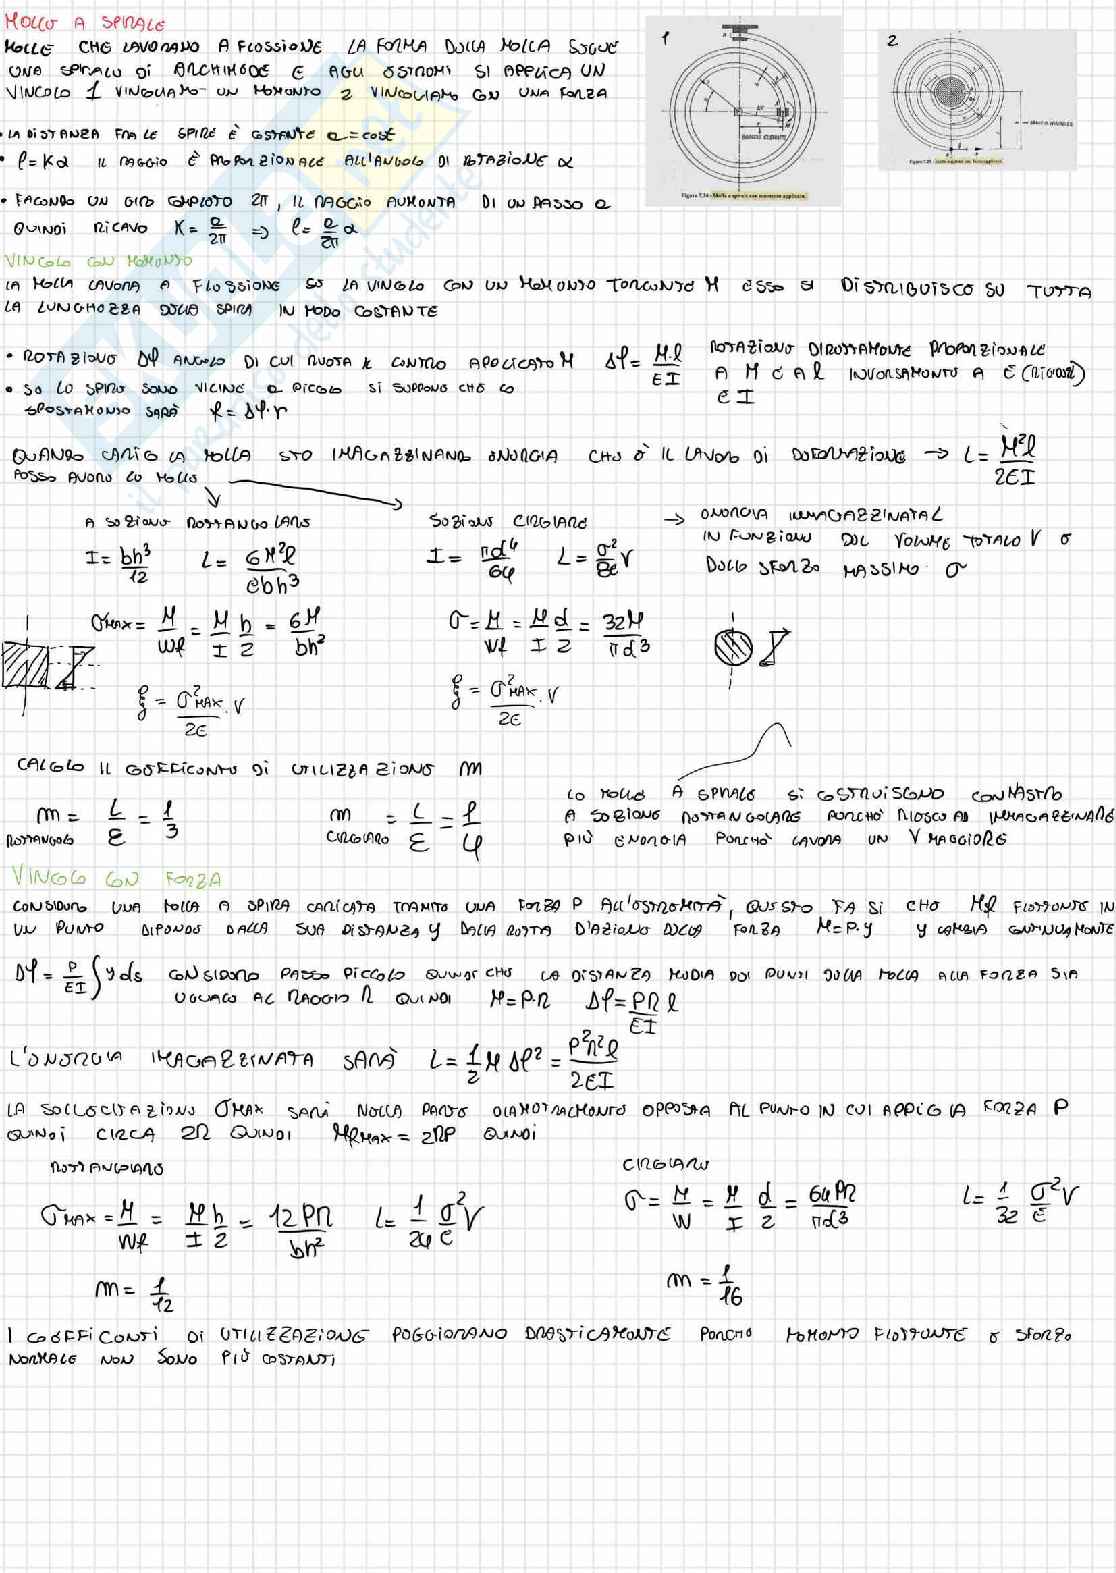 MOLLE A SPIRALE
MOLLE CHE LAVORANO A FLESSIONE LA FORMA DELLA MOLLA SEGUE
UNA SPIRALE DI ARCHIMEDE E AGLI ESTREMI SI APPLICA UN
VINCOLO 1 VINCOLIAMO UN MOMENTO 2 VINCOLIAMO CON UNA FORZA
1
2
Figura 7.24 - Molla a spirale con momento applicato.
• LA DISTANZA FRA LE SPIRE È COSTANTE a = cost
• ρ = Kα IL RAGGIO È PROPORZIONALE ALL'ANGOLO DI ROTAZIONE α
• FACENDO UN GIRO COMPLETO 2π, IL RAGGIO AUMENTA DI UN PASSO a
QUINDI RICAVO K = a/2π => ρ = a/2π α
VINCOLO CON MOMENTO
LA MOLLA LAVORA A FLESSIONE SE LA VINCOLO CON UN MOMENTO TORCENTE M ESSO SI DISTRIBUISCE SU TUTTA
LA LUNGHEZZA DELLA SPIRA IN MODO COSTANTE
• ROTAZIONE Δφ ANGOLO DI CUI RUOTA IL CENTRO APPLICATO M Δφ = M·l/EI ROTAZIONE DIRETTAMENTE PROPORZIONALE
A M E A l INVERSAMENTE A E (RIGIDEZ)
E I
• SE LE SPIRE SONO VICINE a PICCOLO SI SUPPONE CHE LO
SPOSTAMENTO SARÀ f = Δφ·r
QUANDO CARICO LA MOLLA STO IMMAGAZZINANDO ENERGIA CHE È IL LAVORO DI DEFORMAZIONE → L = M²l/2EI
POSSO AVERE LE MOLLE
A SEZIONE RETTANGOLARE
SEZIONE CIRCOLARE
→ ENERGIA IMMAGAZZINATA L
IN FUNZIONE DEL VOLUME TOTALE V E
DELLO SFORZO MASSIMO σ
I = bh³/12 L = 6M²l/Ebh³
I = πd⁴/64 L = σ²/8E V
σMAX = M/Wf = M/I h/2 = 6M/bh²
σ = M/Wf = M/I d/2 = 32M/πd³
ξ = σ²MAX/2E · V
ξ = σ²MAX/2E · V
CALCOLO IL COEFFICENTE DI UTILIZZAZIONE m
m RETTANGOLO = L/ε = 1/3
m CIRCOLARE = L/ε = 1/4
LE MOLLE A SPIRALE SI COSTRUISCONO CON NASTRO
A SEZIONE RETTANGOLARE PERCHÈ RIESCO AD IMMAGAZZINARE
PIÙ ENERGIA PERCHÈ LAVORA UN V MAGGIORE
VINCOLO CON FORZA
CONSIDERO UNA MOLLA A SPIRA CARICATA TRAMITE UNA FORZA P ALL'ESTREMITÀ, QUESTO FA SI CHE Mf FLETTENTE IN
UN PUNTO DIPENDE DALLA SUA DISTANZA y DALLA RETTA D'AZIONE DELLA FORZA M = P·y y CAMBIA CONTINUAMENTE
Δφ = P/EI ∫ y ds CONSIDERO PASSO PICCOLO QUINDI CHE LA DISTANZA MEDIA DEI PUNTI DELLA MOLLA ALLA FORZA SIA
UGUALE AL RAGGIO R QUINDI M = P·R Δφ = PR/EI l
L'ENERGIA IMMAGAZZINATA SARÀ L = 1/2 M Δφ² = P²R²l/2EI
LA SOLLECITAZIONE σMAX SARÀ NELLA PARTE DIAMETRALMENTE OPPOSTA AL PUNTO IN CUI APPLICO LA FORZA P
QUINDI CIRCA 2R QUINDI MfMAX = 2RP QUINDI
RETTANGOLARE
CIRCOLARE
σMAX = M/Wf = M/I h/2 = 12PR/bh² L = 1/24 σ²/E V
σ = M/W = M/I d/2 = 64PR/πd³ L = 1/32 σ²/E V
m = 1/12
m = 1/16
I COEFFICENTI DI UTILIZZAZIONE PEGGIORANO DRASTICAMENTE PERCHÈ MOMENTO FLETTENTE E SFORZO
NORMALE NON SONO PIÙ COSTANTI